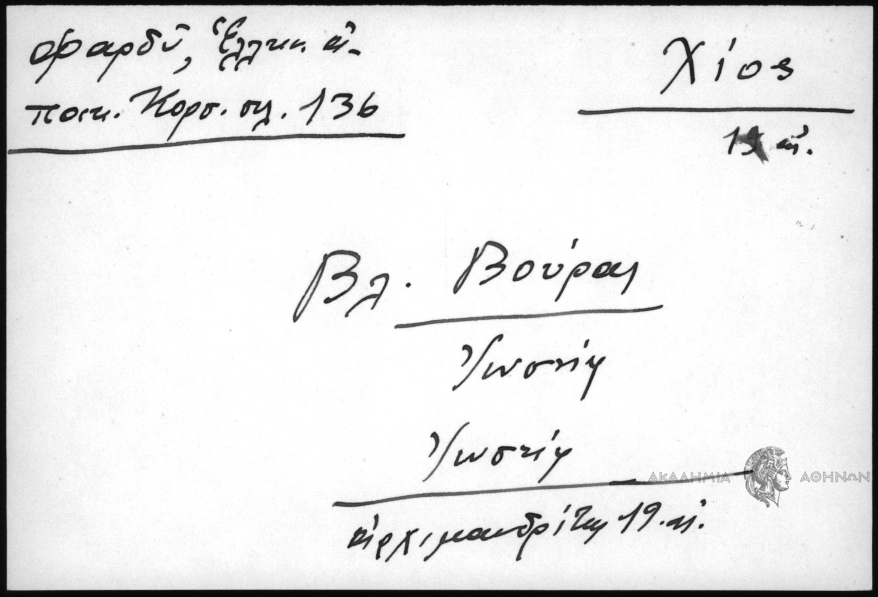 Φαρδύ, Ἑλλην. ἀ-
ποικ. Κορσ. σελ. 136
Χίος
19 αἰ.
Βλ. Βούρας
Ἰωσήφ
Ἰωσήφ
ἀρχιμανδρίτης 19. αἰ.
ΑΚΑΔΗΜΙΑ ΑΘΗΝΩΝ